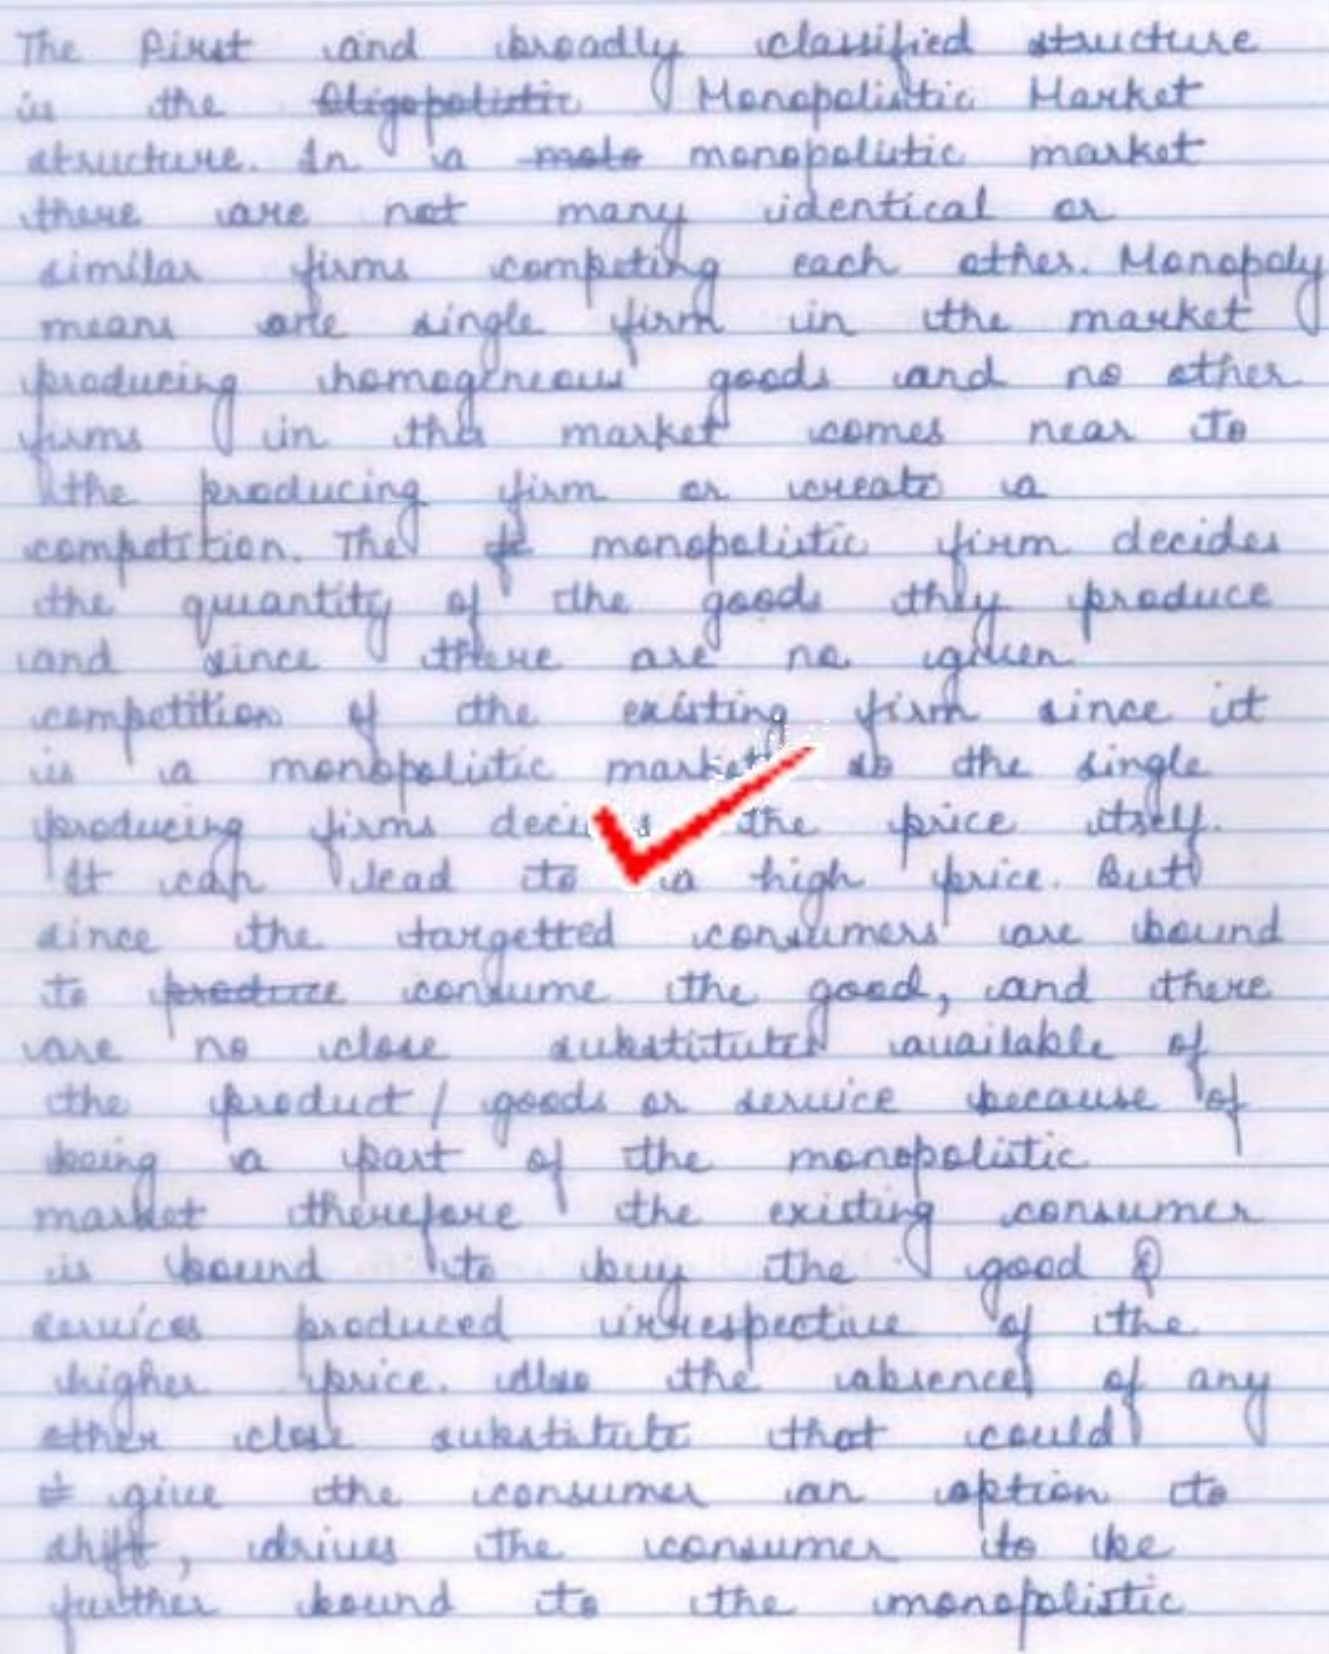 The first and broadly classified structure
is the ~~Oligopolistic~~ Monopolistic Market
structure. In a ~~molo~~ monopolistic market
there are not many identical or
similar firms competing each other. Monopoly
means one single firm in the market
producing homogeneous goods and no other
firms in the market comes near to
the producing firm or create a
competition. The monopolistic firm decides
the quantity of the goods they produce
and since there are no given
competition of the existing firm since it
is a monopolistic market so the single
producing firms decides the price itself.
It can lead to a high price. But
since the targetted consumers are bound
to ~~produce~~ consume the good, and there
are no close substitutes available of
the product / goods or service because of
being a part of the monopolistic
market therefore the existing consumer
is bound to buy the good &
services produced irrespective of the
higher price. Also the absence of any
other close substitute that could
give the consumer an option to
shift, drives the consumer to be
further bound to the monopolistic